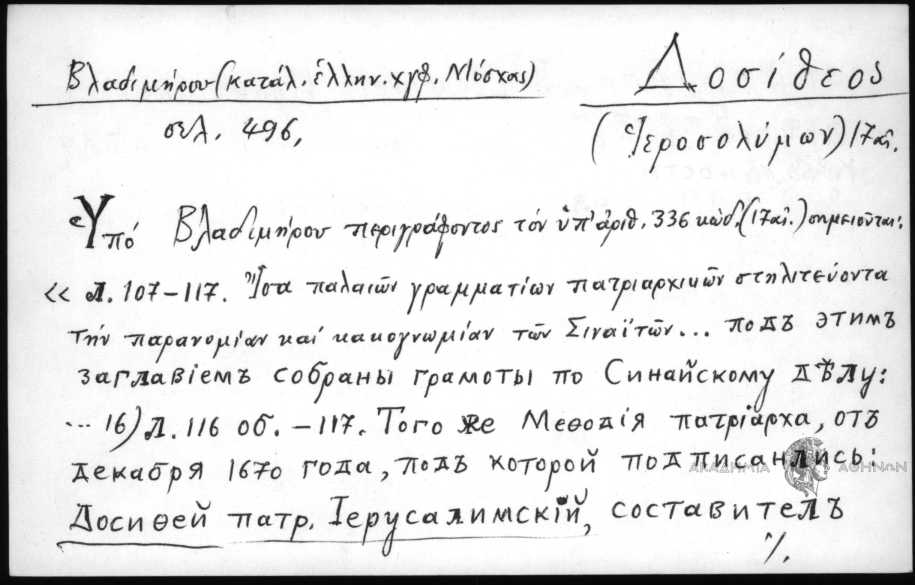 Βλαδιμήρου (κατάλ. ἑλλην. χγφ. Μόσχας)
Δοσίθεος
σελ. 496,
(Ἱεροσολύμων) 17 αἰ.
Ὑπό Βλαδιμήρου περιγράφοντος τόν ὑπ' ἀριθ. 336 κώδ. (17 αἰ.) σημειοῦται:
« Л. 107–117. Ἴσα παλαιῶν γραμματίων πατριαρχικῶν στηλιτεύοντα
τήν παρανομίαν καί κακογνωμίαν τῶν Σιναϊτῶν... подъ этимъ
заглавіемъ собраны грамоты по Синайскому дѣлу:
... 16) Л. 116 об. – 117. Того же Меѳодія патріарха, отъ
декабря 1670 года, подъ которой подписанлись:
Досиѳей патр. Іерусалимскій, составитель
·/.
ΑΚΑΔΗΜΙΑ ΑΘΗΝΩΝ